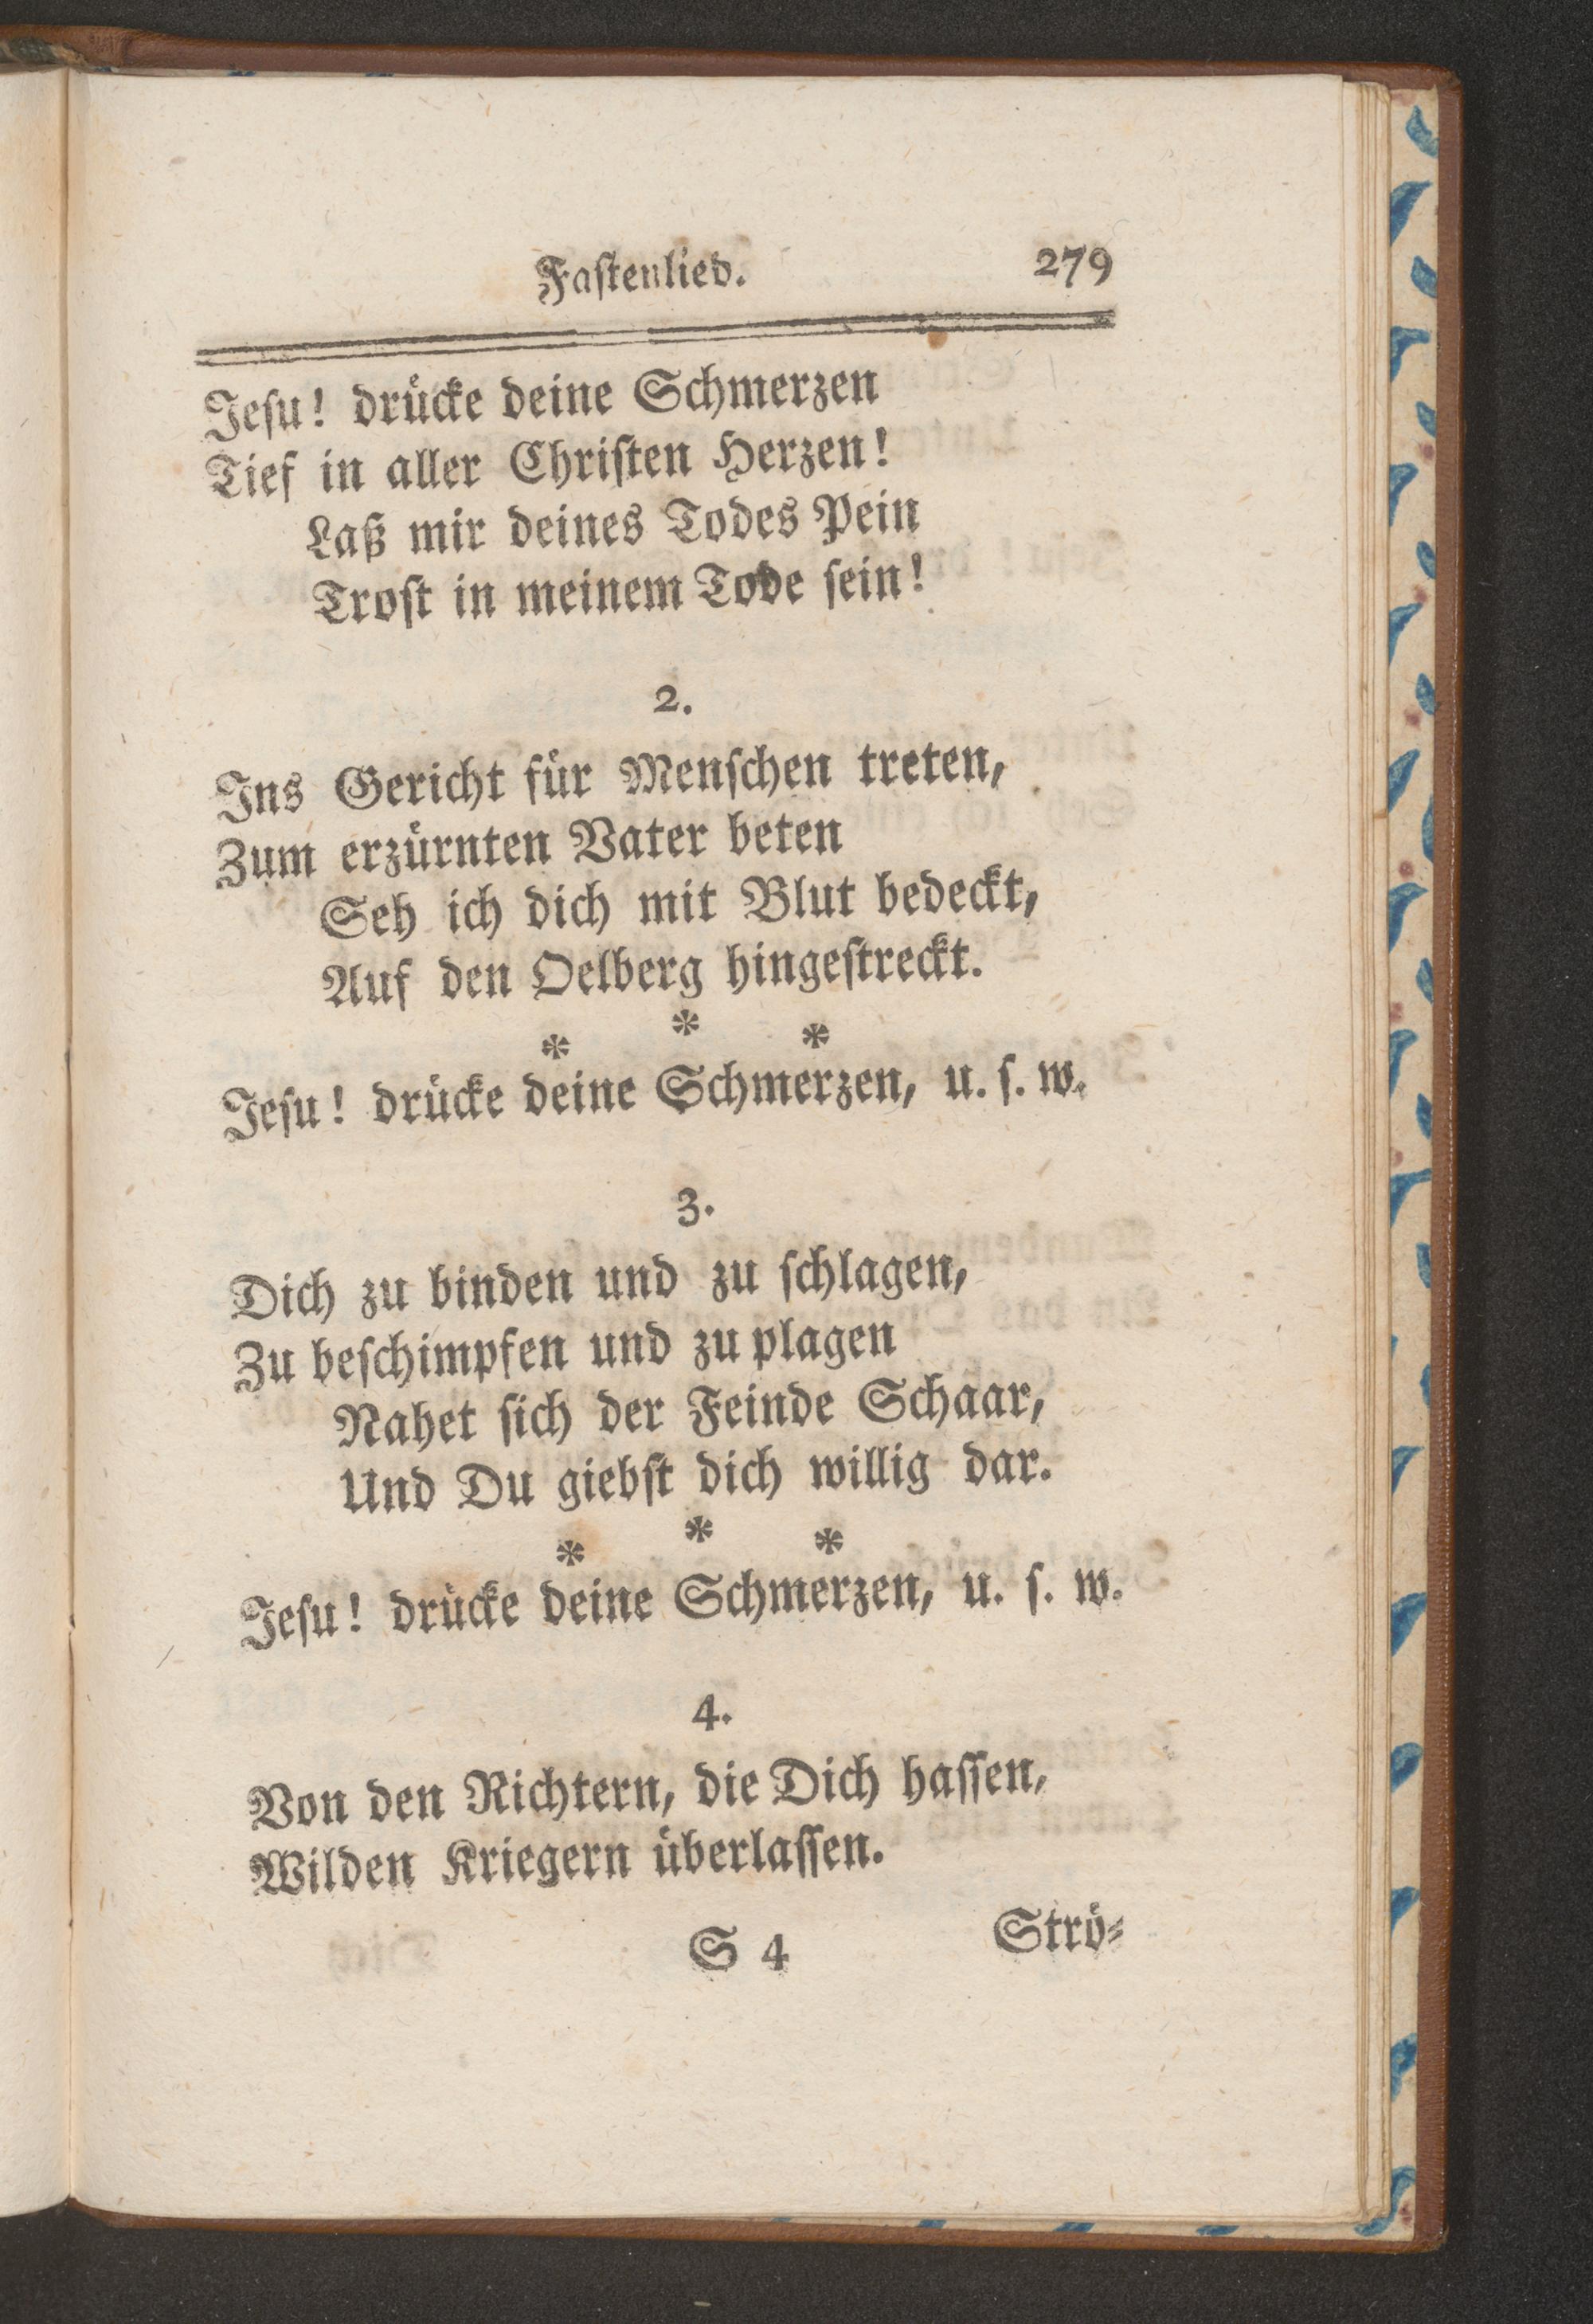 Fastenlied. 279
Jesu! drücke deine Schmerzen
Tief in aller Christen Herzen!
Laß mir deines Todes Pein
Trost in meinem Tode sein!
2.
Ins Gericht für Menschen treten,
Zum erzürnten Vater beten
Seh ich dich mit Blut bedeckt,
Auf den Oelberg hingestreckt.
* * *
Jesu! drücke deine Schmerzen, u. s. w.
3.
Dich zu binden und zu schlagen,
Zu beschimpfen und zu plagen
Nahet sich der Feinde Schaar,
Und Du giebst dich willig dar.
* * *
Jesu! drücke deine Schmerzen, u. s. w.
4.
Von den Richtern, die Dich hassen,
Wilden Kriegern überlassen.
S 4 Strö-